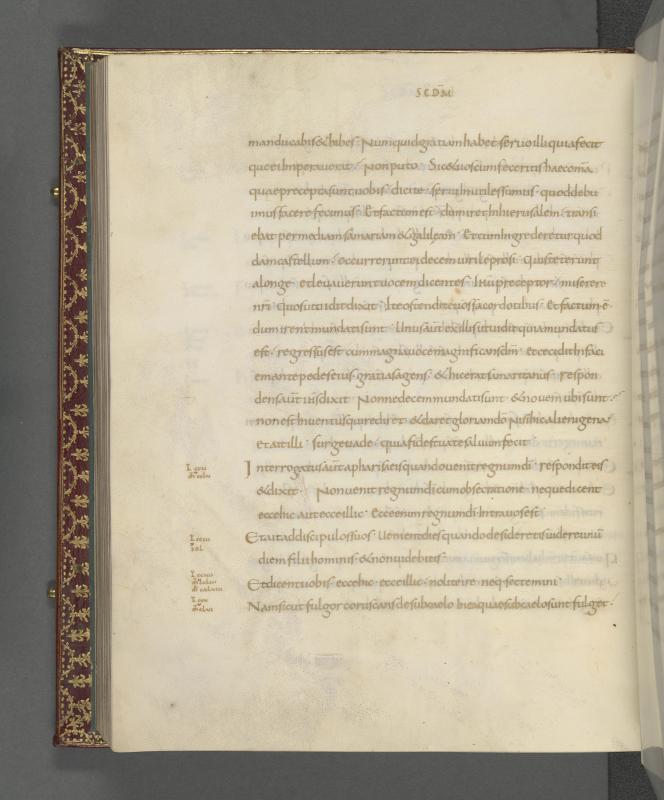 SCDM̄
manducabis & bibes · Numquid gratiam hab& seruo illi quia fecit
quae ei Imperauerat · Non puto · Sic & uos cum feceritis haec om̄a
quae precepta sunt uobis · dicite · serui Inutiles sumus · quod debu
imus facere fecimus · Et factum est · dum ir& In hierusalem · transi
ebat per mediam samariam & galileam · Et cum Ingrederetur quod
dam castellum · occurrerunt ei decem uiri leprosi · Qui st&erunt
alonge · et leuauerunt uocem dicentes · Ihū preceptor · miserere
nr̄i · quos ut uidit dixit · Ite ostendite uos sacerdotibus · Et factum ē
dum irent mundati sunt · Unus aūt ex illis ut uidit quia mundatus
est · regressus est cum magna uoce magnificans dm̄ · Et cecidit In faci
em ante pedes eius gratias agens · & hic erat samaritanus · respon
dens aūt ihs dixit · Nonne decem mundati sunt · & nouem ubi sunt ·
non est Inuentus qui redir& · & dar& gloriam dō · Nisi hic alienigena ·
et ait illi · surge uade · quia fides tua te saluum fecit
Interrogatus aūt a pharisaeis quando uenit regnum dī · respondit eis
& dixit · Non uenit regnum dī cum obseruatione · neque dicent
ecce hic aut ecce illic · Ecce enim regnum dī Intra uos est ·
Et ait ad discipulos suos · Uenient dies quando desideretis uidere unū
diem filii hominis · & non uidebitis ·
Et dicent uobis · ecce hic · ecce illic · nolite ire · neq sectemini
Nam sicut fulgor coruscans de sub caelo In ea quae sub caelo sunt fulget ·